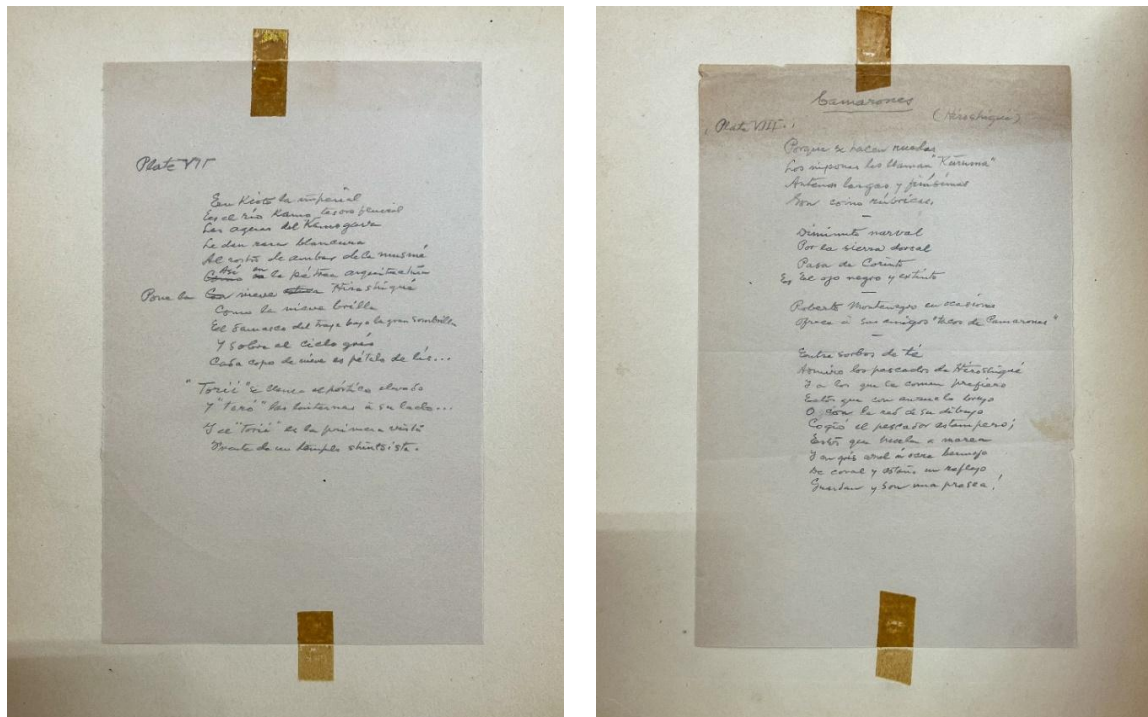 Plate VII
En Kioto la imperial
Es el río Kamo tesoro fluvial
Las aguas del Kamogava
Le dan rara blancura
Al rostro de ambar de la musmé
Así en la pétrea arquitectura
Pone la nieve Hiroshigué
Como la nieve brilla
El damasco del traje bajo la gran sombrilla
Y sobre el cielo gris
Cada copo de nieve es pétalo de lis...
"Torii" se llama el pórtico elevado
Y "Toro" las linternas á su lado...
Y el "Torii" es la primera vista
Frente de un templo shintoista.
Camarones
(Hiroshigué)
Plate VIII.
Porque se hacen ruedas
Los nipones les llaman "Kuruma"
Antenas largas y finísimas
Son como rúbricas.
Diminuto narval
Por la sierra dorsal
Pasa de Corinto
Es El ojo negro y extinto
Roberto Montenegro en ocasiones
Ofrece á sus amigos "tacos de Camarones"
Entre sorbos de té
Admiro los pescados de Hiroshigué
Y a los que se comen prefiero
Estos que con anzuelo
O con la red de su dibujo
Cogió el pescador estampero;
Estos que huelen a marea
Y en gris azul ó ocre bermejo
De coral y estaño un reflejo
Guardan y son una presea!